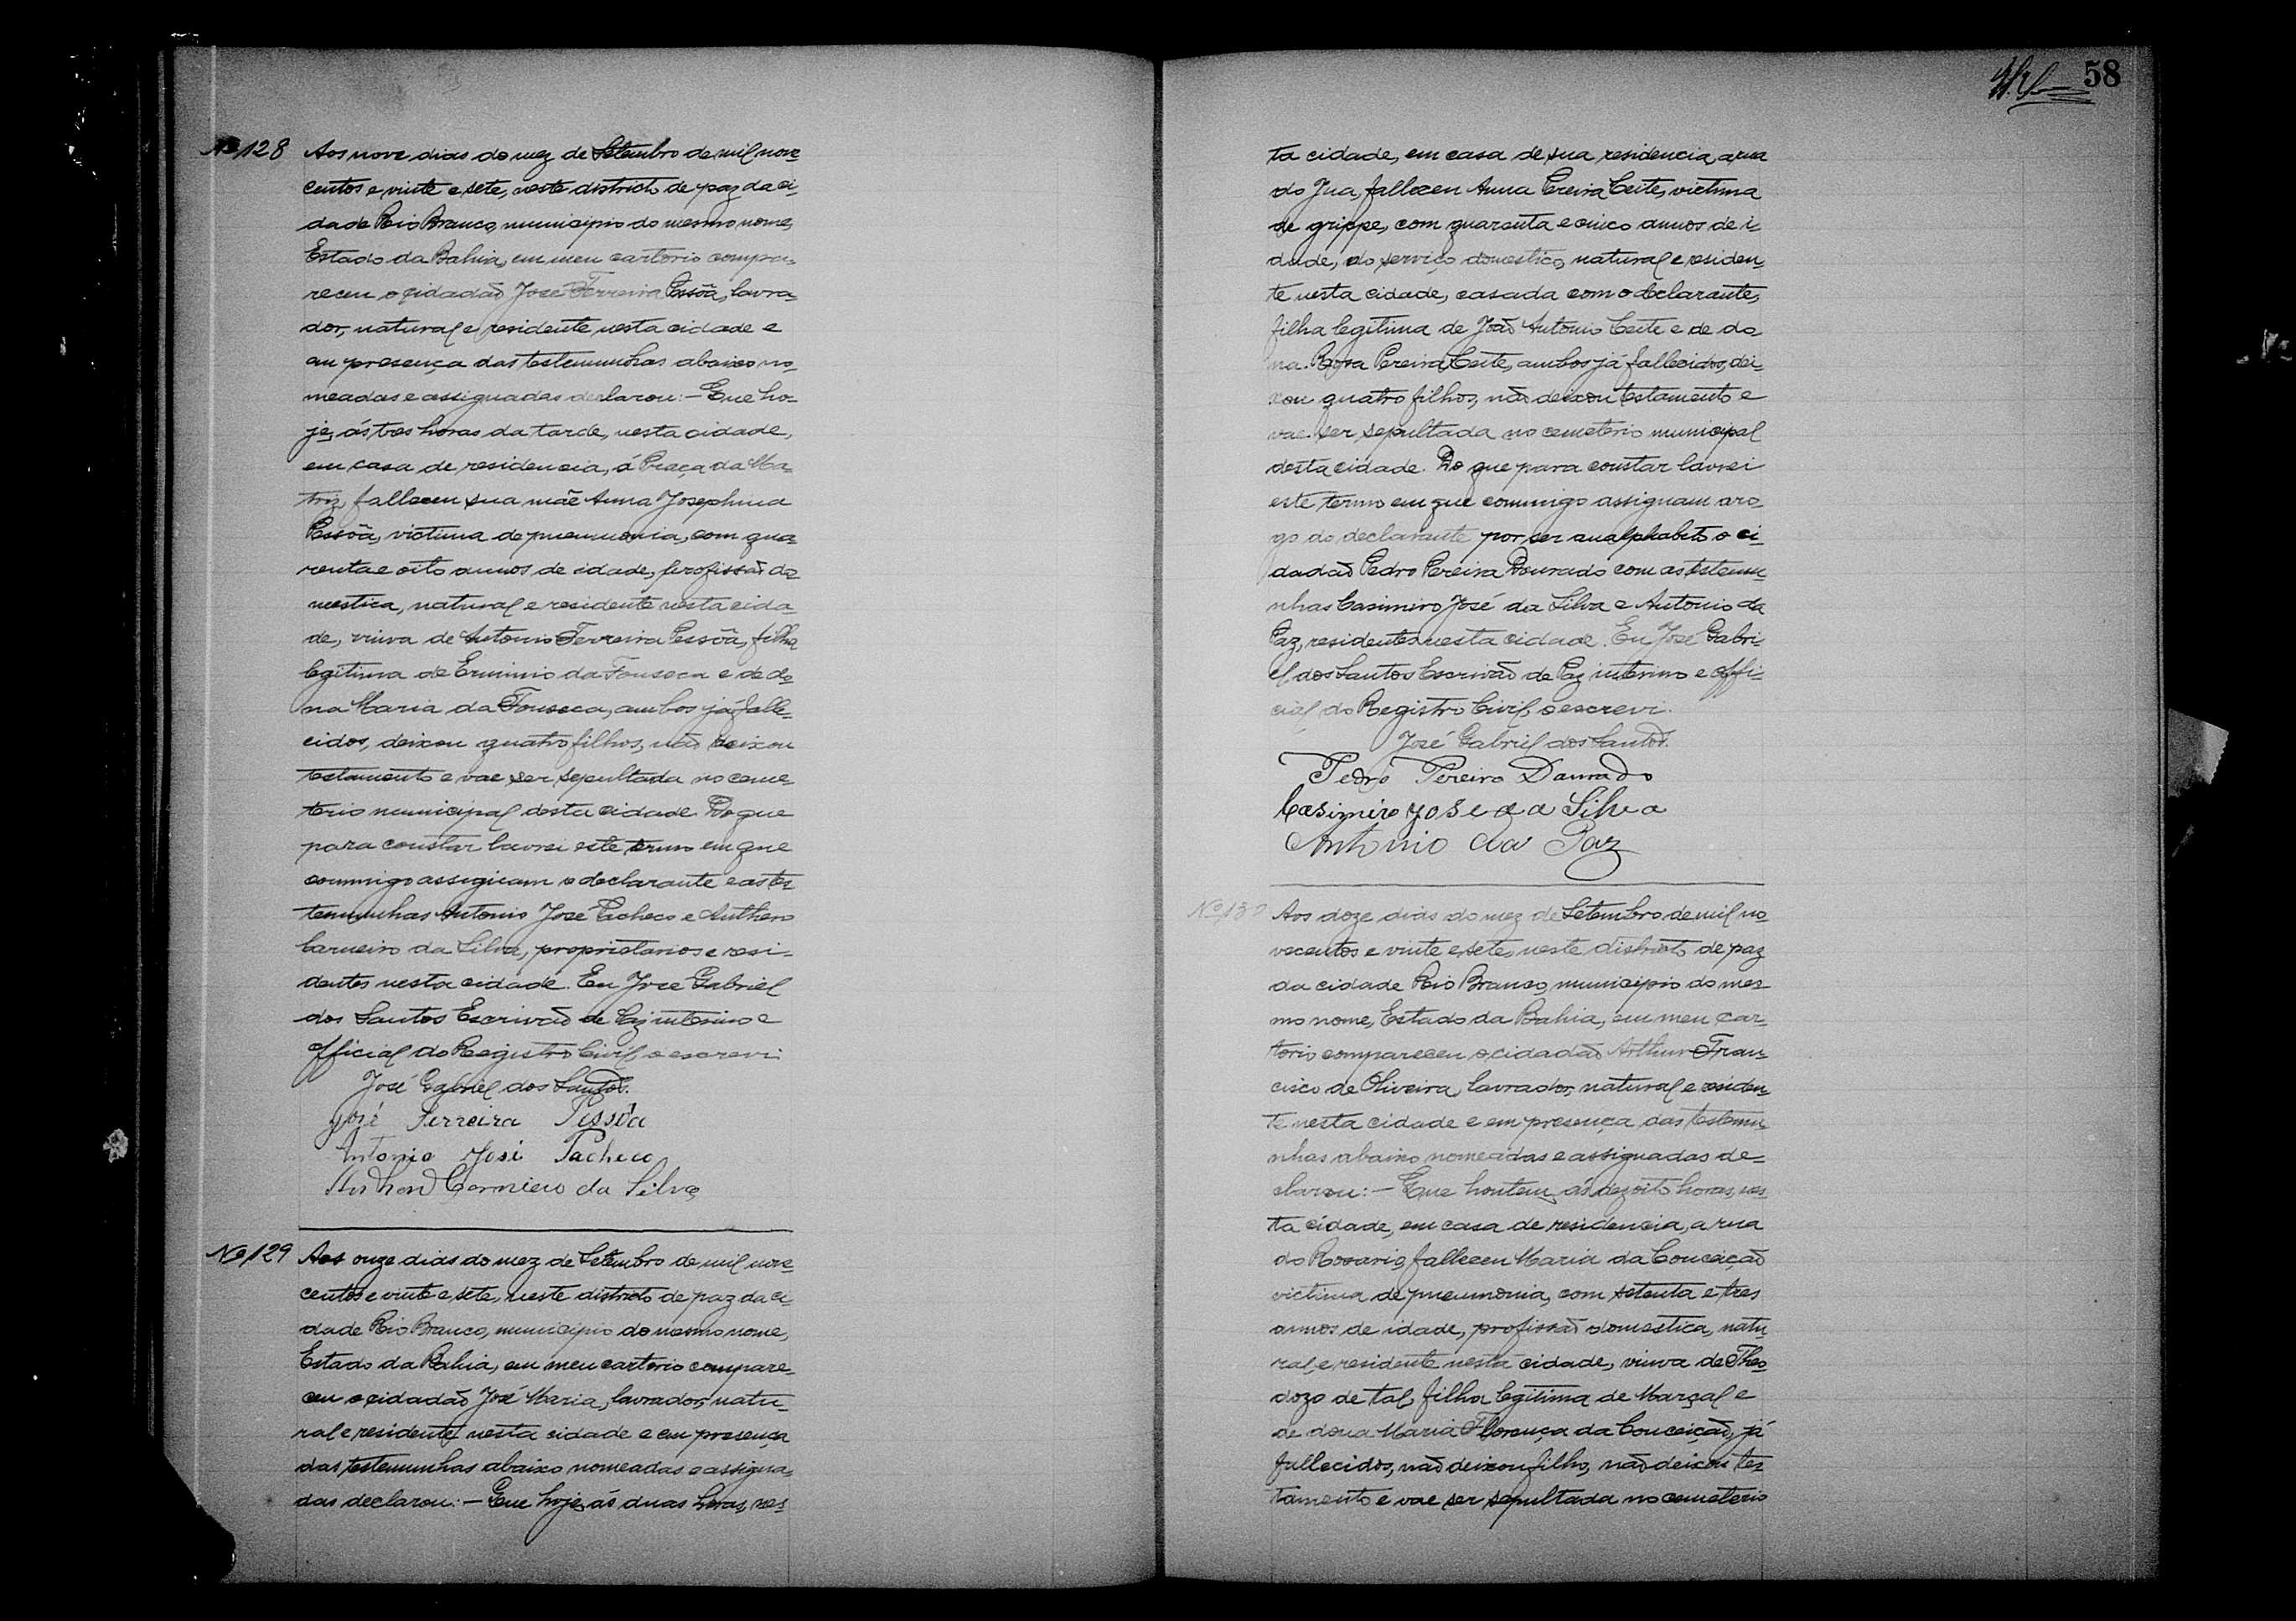 Nº 128 Aos nove dias do mez de Setembro de mil nove
centos e vinte e sete, neste districto de paz da ci-
dade Rio Branco, municipio do mesmo nome,
Estado da Bahia, em meu cartorio compa-
receu o cidadão José Ferreira Pessôa, lavra-
dor, natural e residente nesta cidade e
em presença das testemunhas abaixo no-
meadas e assignadas declarou:- Que ho-
je, ás tres horas da tarde, nesta cidade,
em casa de residencia, á Praça da Ma-
triz, falleceu sua mãe Anna Josephina
Pessôa, victima de pneumonia, com qua-
renta e oito annos de idade, profissão do-
mestica, natural e residente nesta cida-
de, viuva de Antonio Ferreira Pessôa, filha
legitima de Erminio da Fonseca e de do-
na Maria da Fonseca, ambos já falle-
cidos, deixou quatro filhos, não deixou
testamento e vae ser sepultada no ceme-
terio municipal desta cidade. Do que
para constar lavrei este termo em que
commigo assignam o declarante e as tes-
temunhas Antonio José Pacheco e Anthero
Carneiro da Silva, proprietarios e resi-
dentes nesta cidade. Eu José Gabriel
dos Santos Escrivão de Paz interino e
Official do Registro Civil o escrevi.
José Gabriel dos Santos.
José Ferreira Pessôa
Antonio José Pacheco
Carneiro da Silva
Nº 129 Aos onze dias do mez de Setembro de mil nove-
centos e vinte e sete, neste districto de paz da ci-
dade Rio Branco, municipio do mesmo nome,
Estado da Bahia, em meu cartorio compare-
ceu o cidadão José Maria, lavrador, natu-
ral e residente nesta cidade e em presença
das testemunhas abaixo nomeadas e assigna-
das declarou:- Que hoje, ás duas horas, nes-
58
ta cidade, em casa de sua residencia, a rua
do Jua, falleceu Anna Pereira Leite, victima
de grippe, com quarenta e cinco annos de i-
dade, do serviço domestico, natural e residen-
te nesta cidade, casada com o declarante,
filha legitima de João Antonio Leite e de do
na Rosa Pereira Leite, ambos já fallecidos, dei-
xou quatro filhos, não deixou testamento e
vae ser sepultada no cemeterio municipal
desta cidade. Do que para constar lavrei
este termo em que commigo assignam a ro-
go do declarante por ser analphabeto o ci-
dadão Pedro Pereira Dourado com as testemu-
nhas Casimiro José da Silva e Antonio da
Paz, residentes nesta cidade. Eu José Gabri-
el dos Santos Escrivão de Paz interino e Offi-
cial do Registro Civil, o escrevi.
José Gabriel dos Santos.
Pedro Pereira Dourado
Casimiro José da Silva
Antonio da Paz
Nº 130 Aos doze dias do mez de Setembro de mil no-
vecentos e vinte e sete, neste districto de paz
da cidade Rio Branco, municipio do mes-
mo nome, Estado da Bahia, em meu car-
torio compareceu o cidadão Arthur Fran-
cisco de Oliveira, lavrador, natural e residen-
te nesta cidade e em presença das testemu-
nhas abaixo nomeadas e assignadas de-
clarou:- Que hontem, ás dezoito horas, nes-
ta cidade, em casa de residencia, a rua
do Rosario, falleceu Maria da Conceição
victima de pneumonia, com setenta e tres
annos de idade, profissão domestica, natu-
ral e residente nesta cidade, viuva de Theo-
dozo de tal, filha legitima de Marçal e
de dona Maria Florença da Conceição, já
fallecidos, não deixou filho, não deixou tes-
tamento e vae ser sepultada no cemeterio